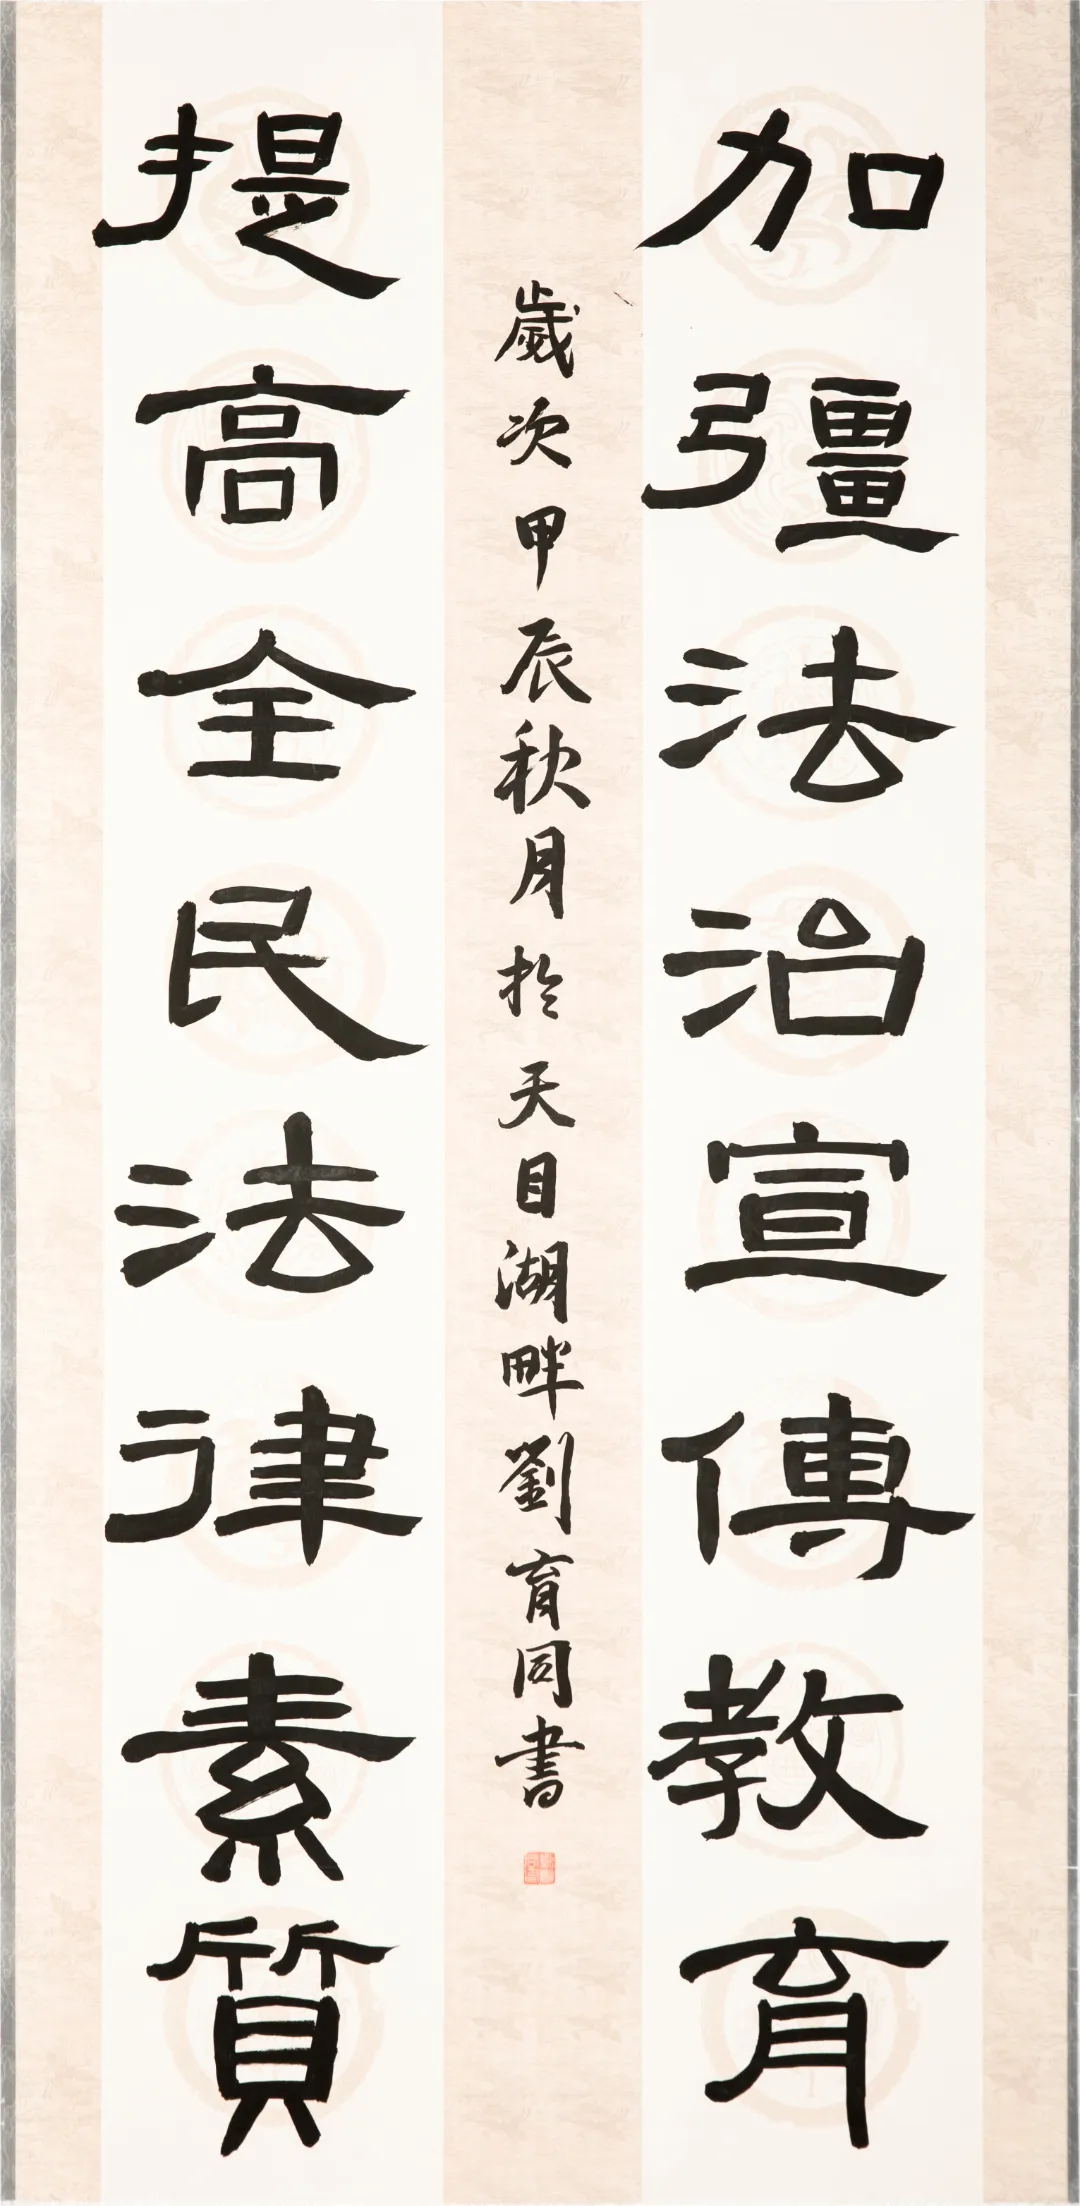 加彊法治宣傳教育
提高全民法律素質
歲次甲辰秋月於天目湖畔劉育同書